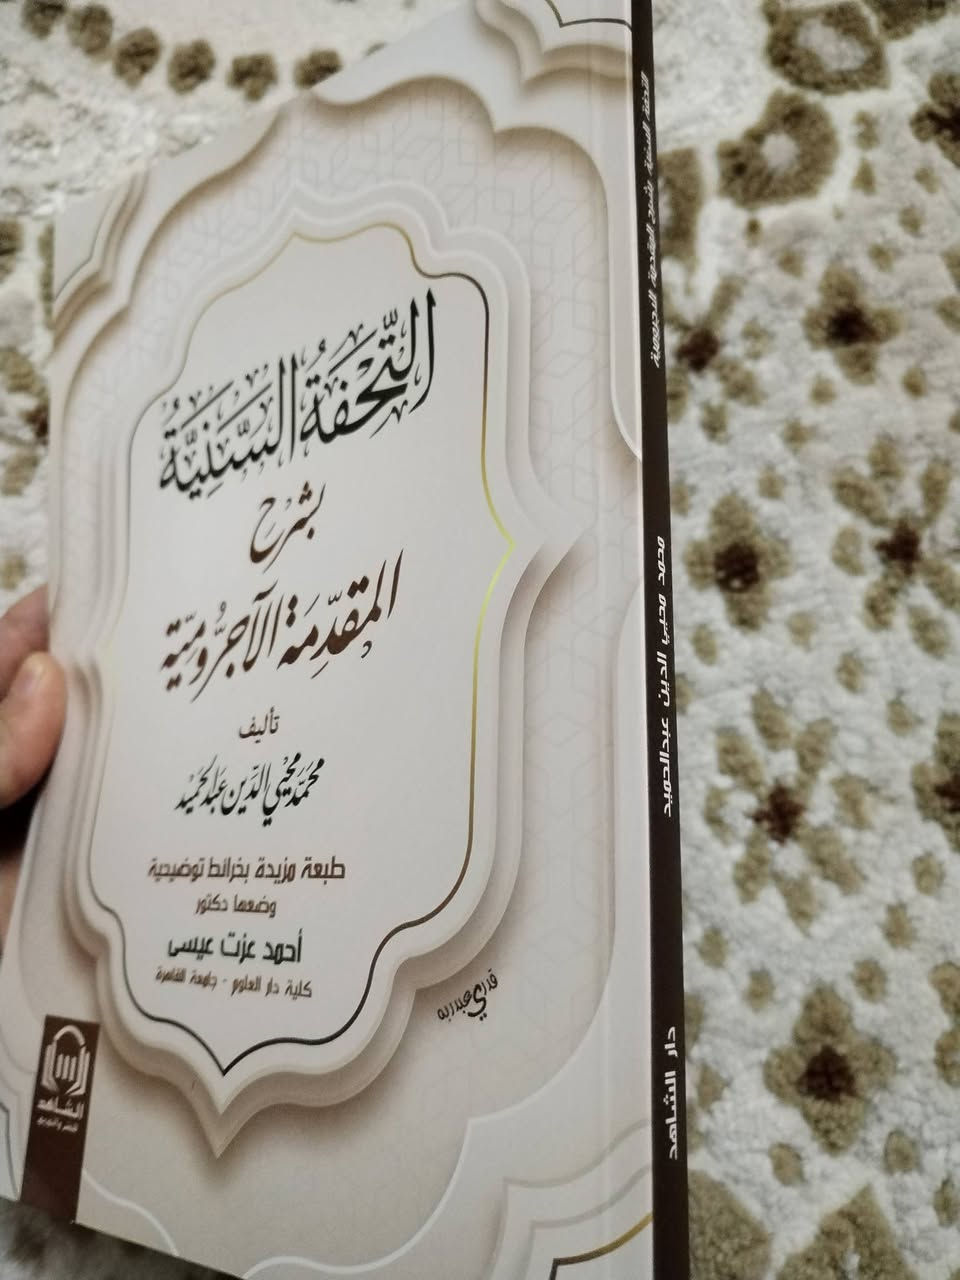 التُّحْفَةُ السَّنِيَّةُ
بشرح
المقدِّمَة الآجرُّوميّة
تأليف
محمّد محيي الدّين عبد الحميد
طبعة مزيدة بخرائط توضيحية
وضعها دكتور
أحمد عزت عيسى
كلية دار العلوم - جامعة القاهرة
قدري عبدربه
الشاهد
للنشر والتوزيع
التحفة السنية بشرح المقدمة الآجرومية
محمد محيي الدين عبدالحميد
دار الشاهد